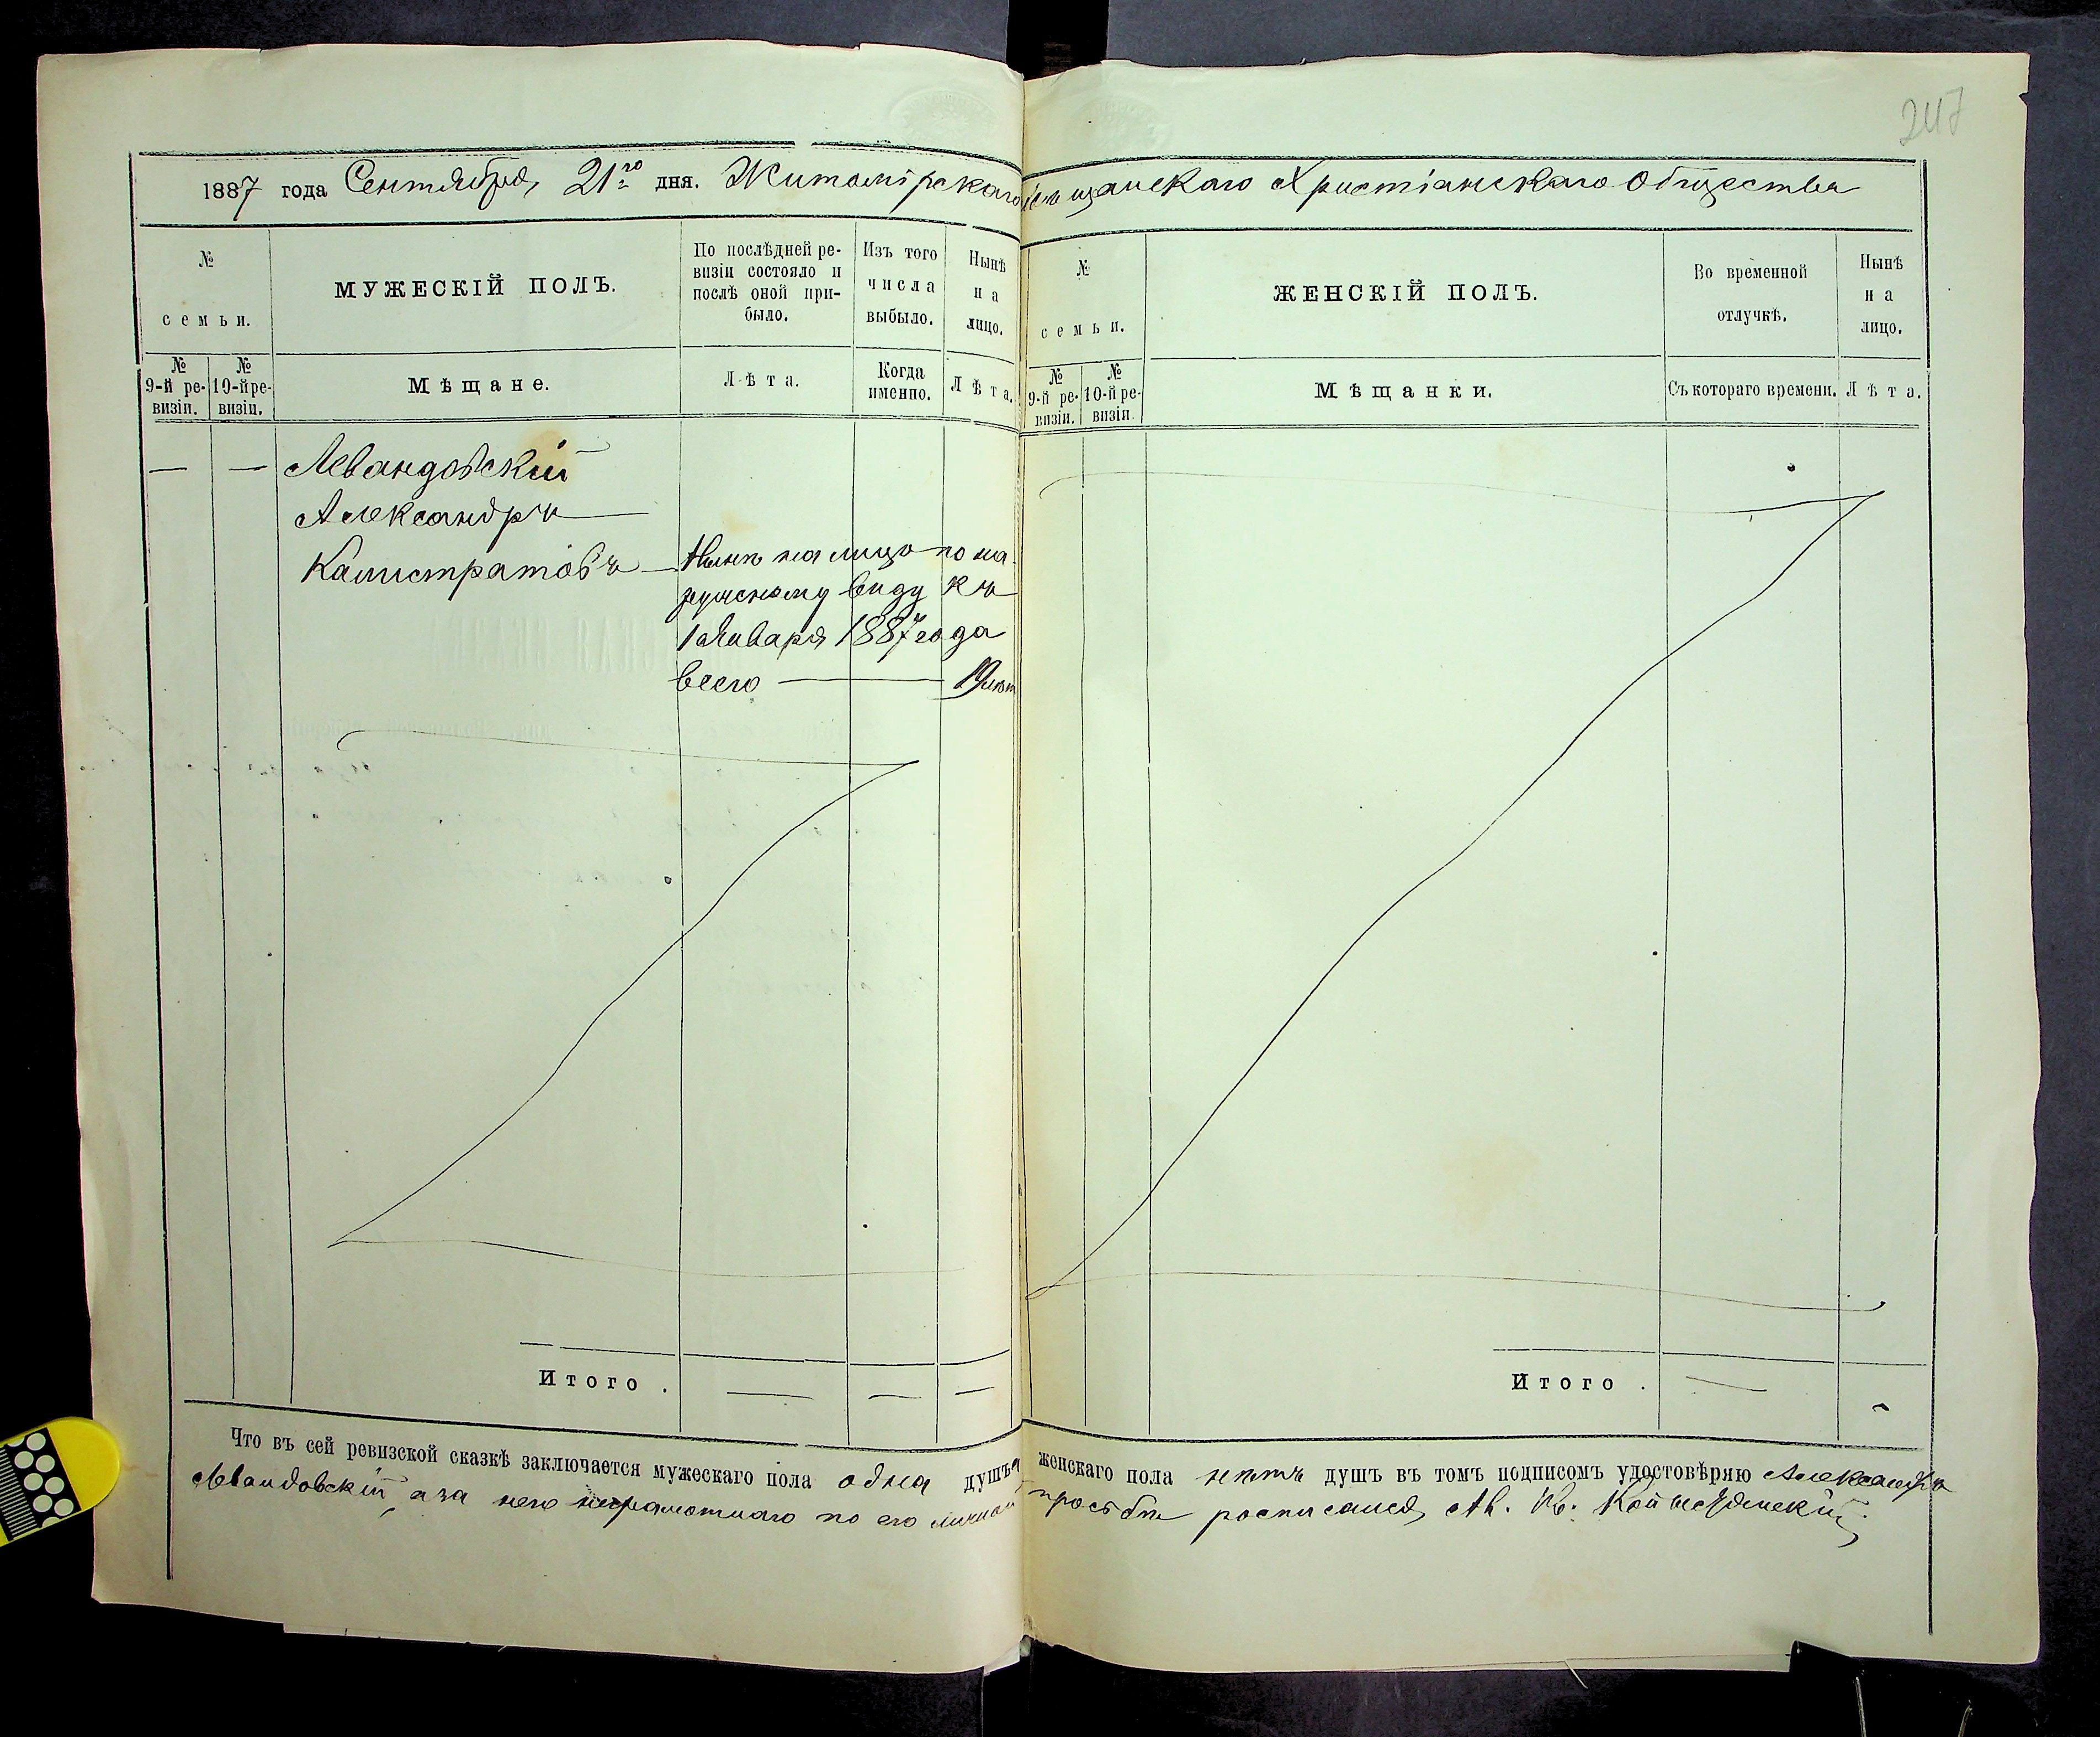 247
1887 года Сентября 21го дня. Житомірскаго Мѣщанскаго Христіанскаго Общества
№ семьи.
МУЖЕСКІЙ ПОЛЪ.
По послѣдней ре-
визіи состояло и
послѣ оной при-
было.
Изъ того
числа
выбыло.
Нынѣ
на
лицо.
№ 9-й ре-
визіи.
№ 10-й ре-
визіи.
Мѣщане.
Лѣта.
Когда
именно.
Лѣта.
— — Левандовскій
Александръ
Калистратовъ — Нынѣ на лицо по на-
ружному виду къ
1 Января 1887 года
всего — 19 лѣтъ
Итого . — — —
№ семьи.
ЖЕНСКІЙ ПОЛЪ.
Во временной
отлучкѣ.
Нынѣ
на
лицо.
№ 9-й ре-
визіи.
№ 10-й ре-
визіи.
Мѣщанки.
Съ котораго времени.
Лѣта.
Итого . — -
Что въ сей ревизской сказкѣ заключается мужескаго пола одна душъа женскаго пола нѣтъ душъ въ томъ подписомъ удостовѣряю Александръ
Левандовскій, а за него неграмотнаго по его личной просьбѣ росписался